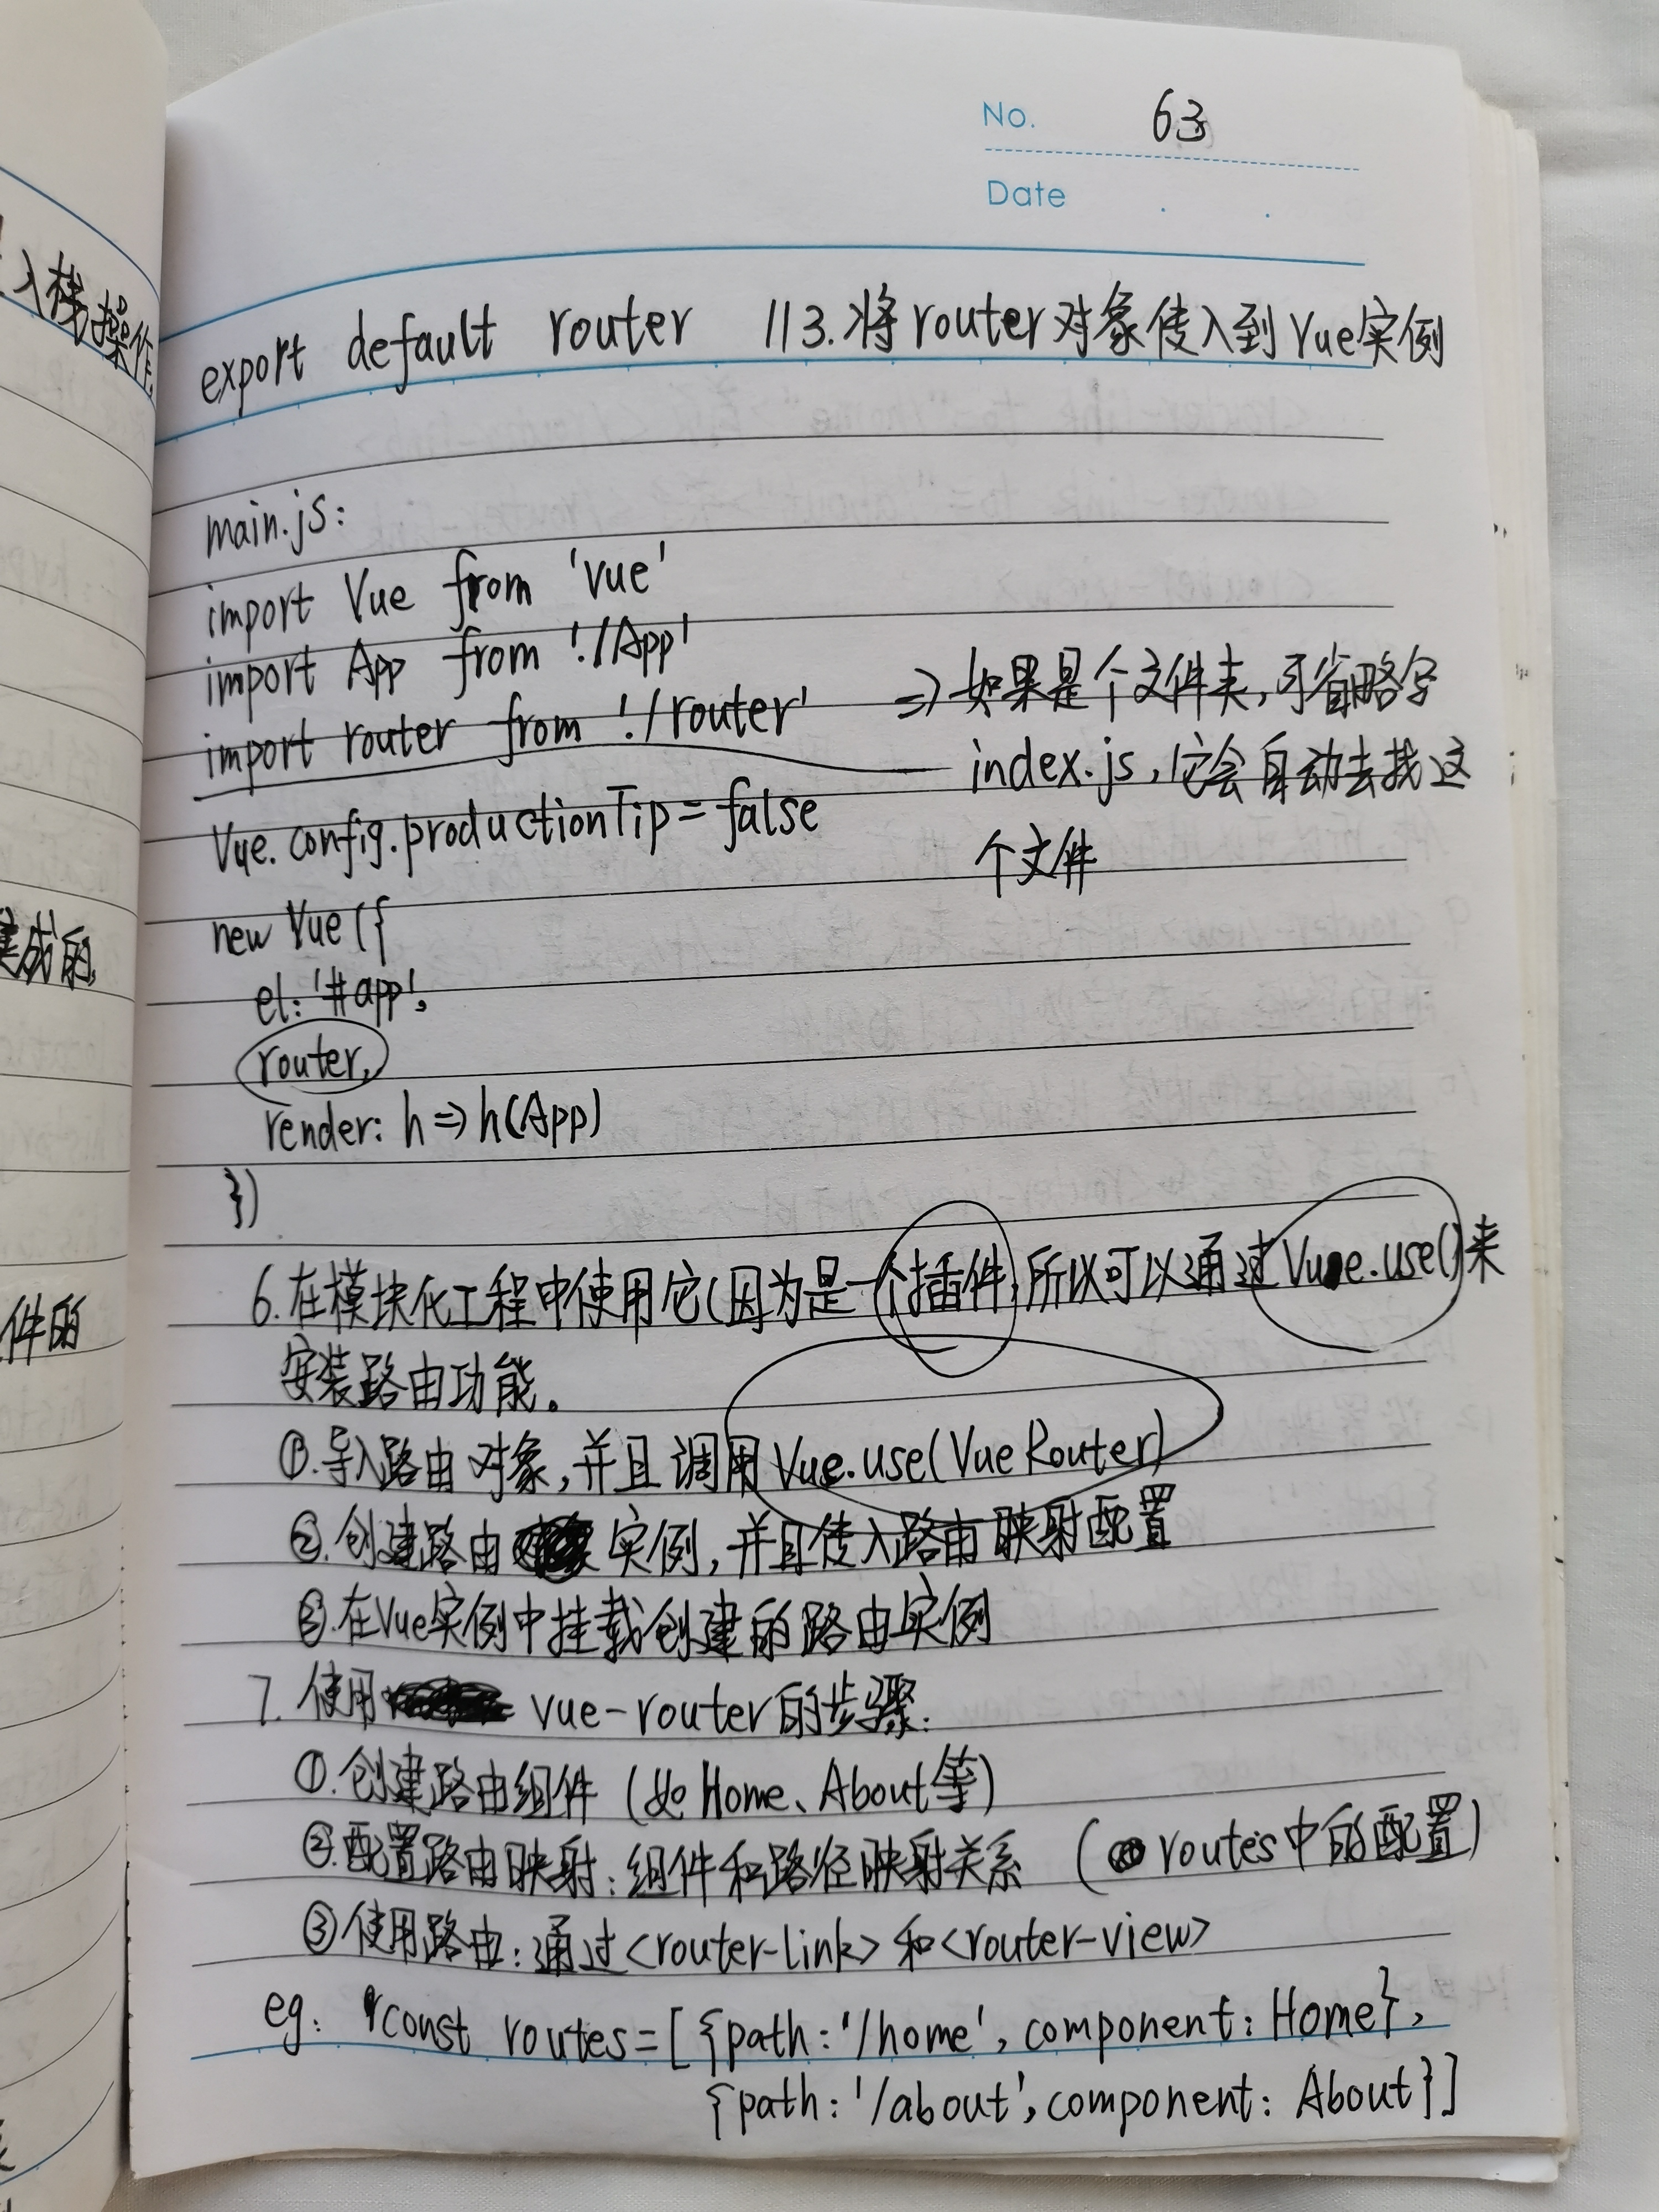 No. 63
Date
export default router //3.将router对象传入到Vue实例
main.js:
import Vue from 'vue'
import App from './App'
import router from './router' => 如果是个文件夹,可省略字
index.js,它会自动去找这
Vue.config.productionTip=false
个文件
new Vue({
el:'#app',
router,
render: h=>h(App)
})
6.在模块化工程中使用它(因为是一个插件,所以可以通过Vue.use()来
安装路由功能。
①.导入路由对象,并且调用Vue.use(VueRouter)
②.创建路由实例,并且传入路由映射配置
③.在Vue实例中挂载创建的路由实例
7.使用 vue-router的步骤:
①.创建路由组件 (如Home、About等)
②.配置路由映射:组件和路径映射关系 (routes中的配置)
③使用路由:通过<router-link>和<router-view>
eg: const routes=[{path:'/home',component:Home},
{path:'/about',component: About}]
入栈操作.
成的.
件的